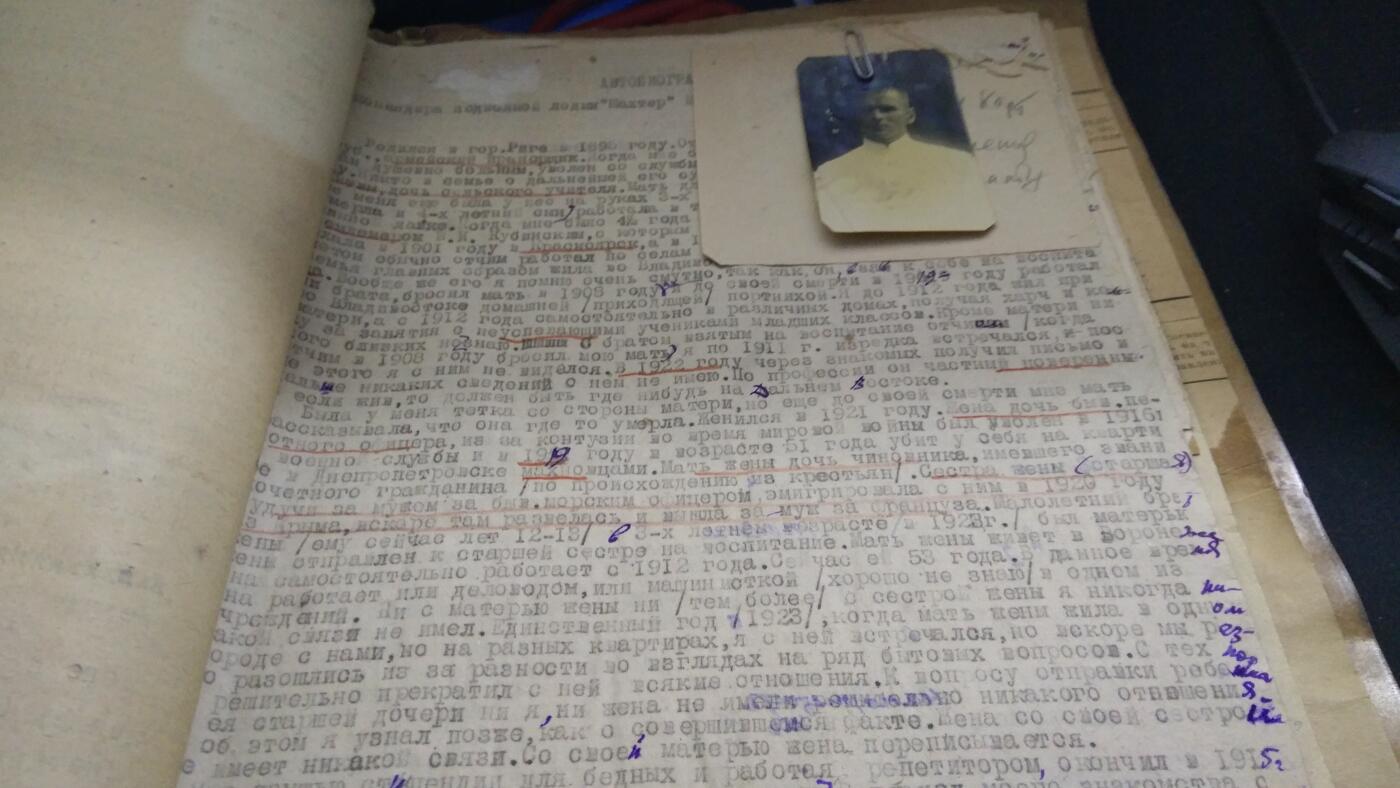 АВТОБИОГРА
командира подводной лодки "Шахтер"
Родился в гор.Риге в 1898 году.От
армейский прапорщик.Когда мне
душевно больным,уволен со службы
Никто в семье о дальнейшей его
дочь сельского учителя.Мать
меня еще была у нее на руках 3-х
умерла и 4-х летний сын работала в
лавке.Когда мне было 4½ года
И.И. Кубинским,с которым
в 1901 году в Красноярск,а в 1
обычно отчим работал по селам
семья главных образом жила во
Вообще же его я помню очень смутно,так как,он, взяв к себе на воспита
брата,бросил мать в 1908 году и до своей смерти в 1919 году работал
Владивостоке домашней /приходящей/ портнихой.Я до 1912 года жил при
матери,а с 1912 года самостоятельно в различных домах,получая харч и
за занятия с неуспевающими учениками младших классов.Кроме матери ни
ого близких не знаю. с братом взятым на воспитание отчимом /когда
отчим в 1908 году бросил мою мать/ я по 1911 г. изредка встречался,и пос
этого я с ним не видался.В 1922 году через знакомых получил письмо и
никаких сведений о нем не имею.По профессии он частный поверенны-
если жив,то должен быть где нибудь на Дальнем Востоке.
Была у меня тетка со стороны матери,но еще до своей смерти мне мать
ассказывала,что она где то умерла.Женился в 1921 году.Жена дочь быв.пе-
отного офицера,из за контузии во время мировой войны был уволен в 1916г
военной службы и в 1919 году в возрасте 51 года убит у себя на кварти
е в Днепропетровске махновцами.Мать жены дочь чиновника,имевшего звани
очетного гражданина /по происхождению из крестьян/.Сестра жены (старшая)
удучи за мужом за быв.морским офицером,эмигрировала с ним в 1920 году
з Крыма,вскоре там развелась и вышла за муж за француза.Малолетний бра
ены /ему сейчас лет 12-13/ в 3-х летнем возрасте/в 1923г./ был матерью
ены отправлен к старшей сестре на воспитание.Мать жены живет в Воронеже
на самостоятельно работает с 1912 года.Сейчас ей 53 года.В данное время
на работает или деловодом,или машинисткой /хорошо не знаю/в одном из
чреждений. Ни с матерью жены ни /тем более/ с сестрой жены я никогда ни-
акой связи не имел.Единственный год /1923/,когда мать жены жила в одном
ороде с нами,но на разных квартирах,я с ней встречался,но вскоре мы рез-
о разошлись из за разности во взглядах на ряд бытовых вопросов.С тех пор
решительно прекратил с ней всякие отношения.К вопросу отправки ребенка
ея старшей дочери ни я,ни жена не имели решительно никакого отношения
об этом я узнал позже,как о совершившемся факте.Жена со своей сестрой
е имеет никакой связи.Со своей матерью жена переписывается.
стипендии для бедных и работая репетитором, окончил в 1915г